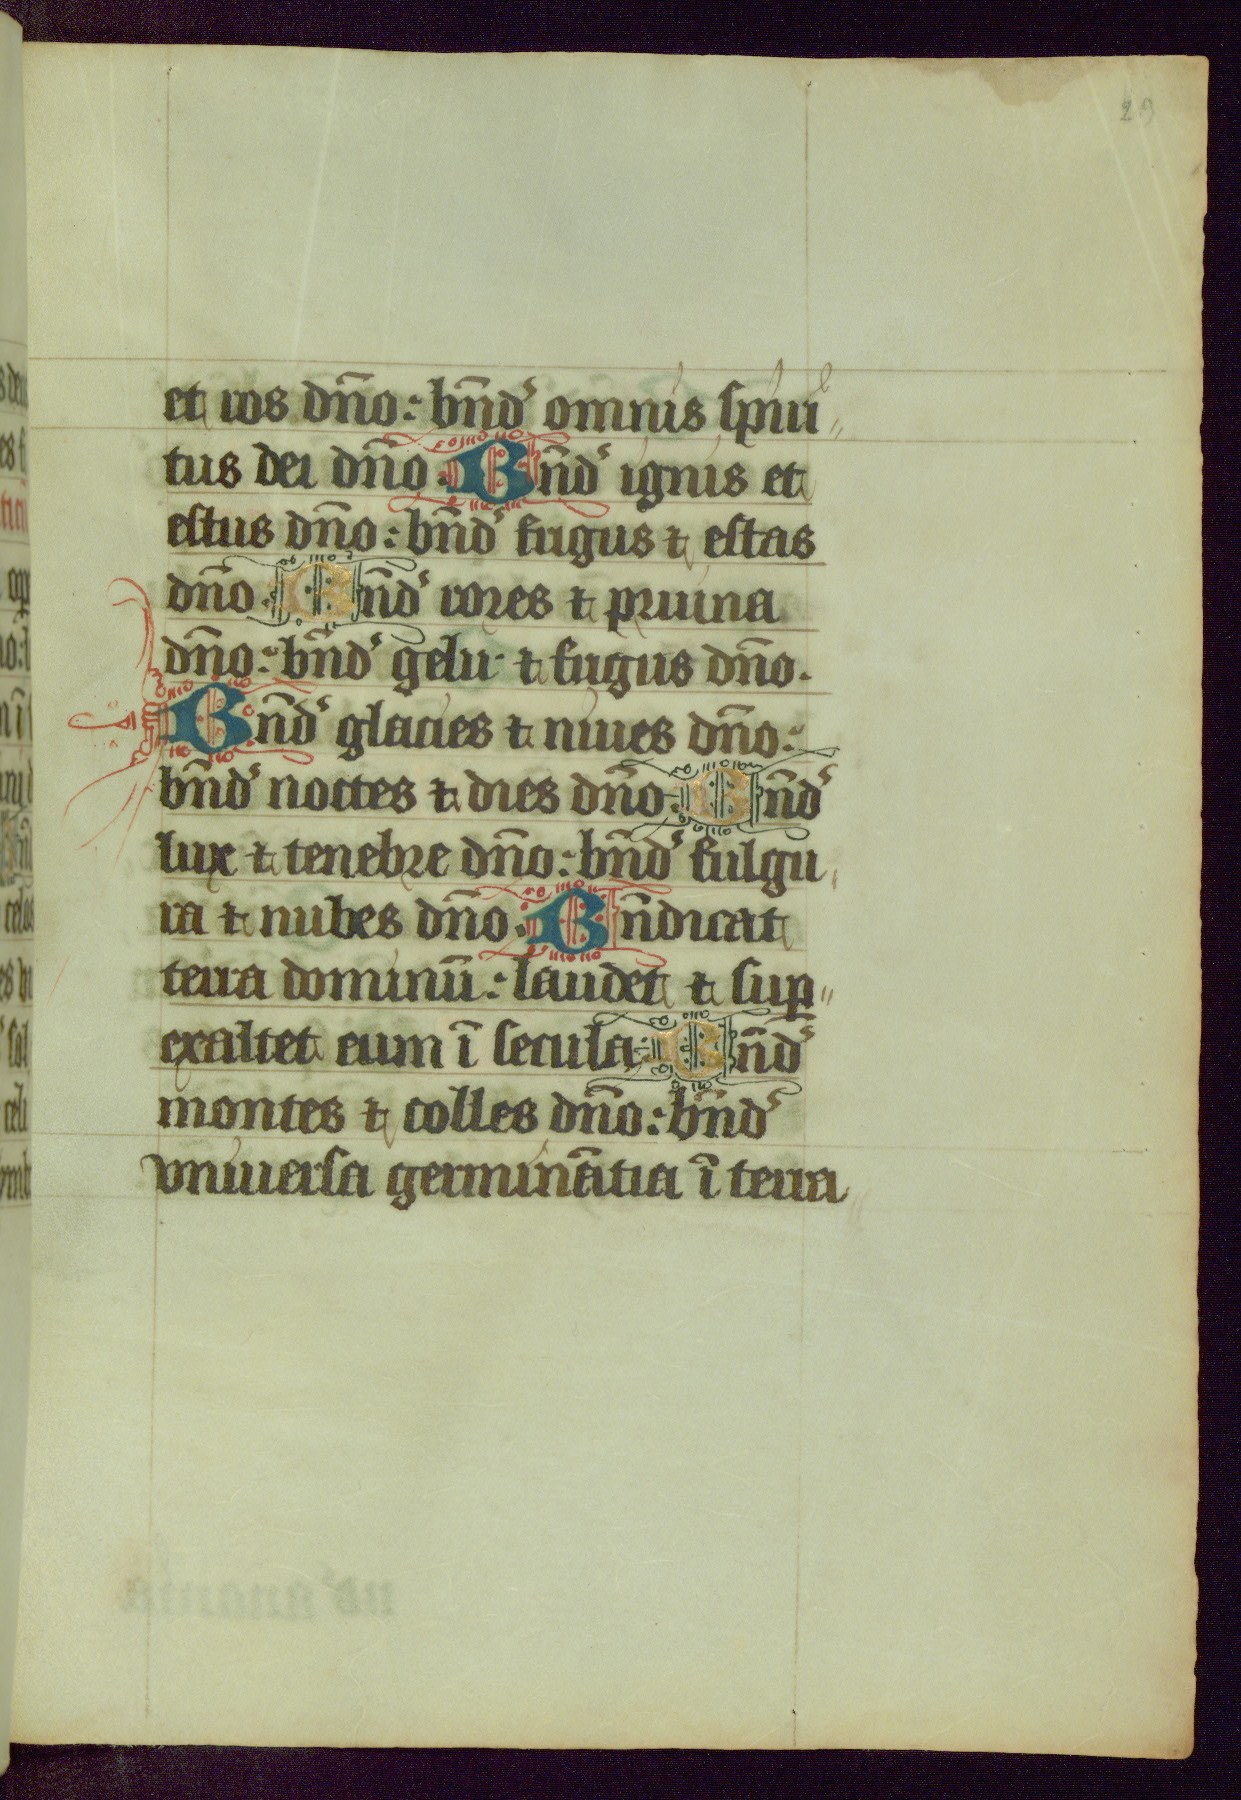 29
et ros dn̄o: bn̄dꝰ omnis spūi〃
tus dei dn̄o. Bn̄dꝰ ignis et
estus dn̄o: bn̄dꝰ frigus ⁊ estas
dn̄o. Bn̄dꝰ rores ⁊ pruina
dn̄o: bn̄dꝰ gelu ⁊ frigus dn̄o.
Bn̄dꝰ glacies ⁊ niues dn̄o:
bn̄dꝰ noctes ⁊ dies dn̄o. Bn̄dꝰ
lux ⁊ tenebre dn̄o: bn̄dꝰ fulgu
ra ⁊ nubes dn̄o. Bn̄dicat
terra dominū: laudet ⁊ suꝑ〃
exaltet eum ī secula: Bn̄dꝰ
montes ⁊ colles dn̄o: bn̄dꝰ
vniuersa germinātia ī terra